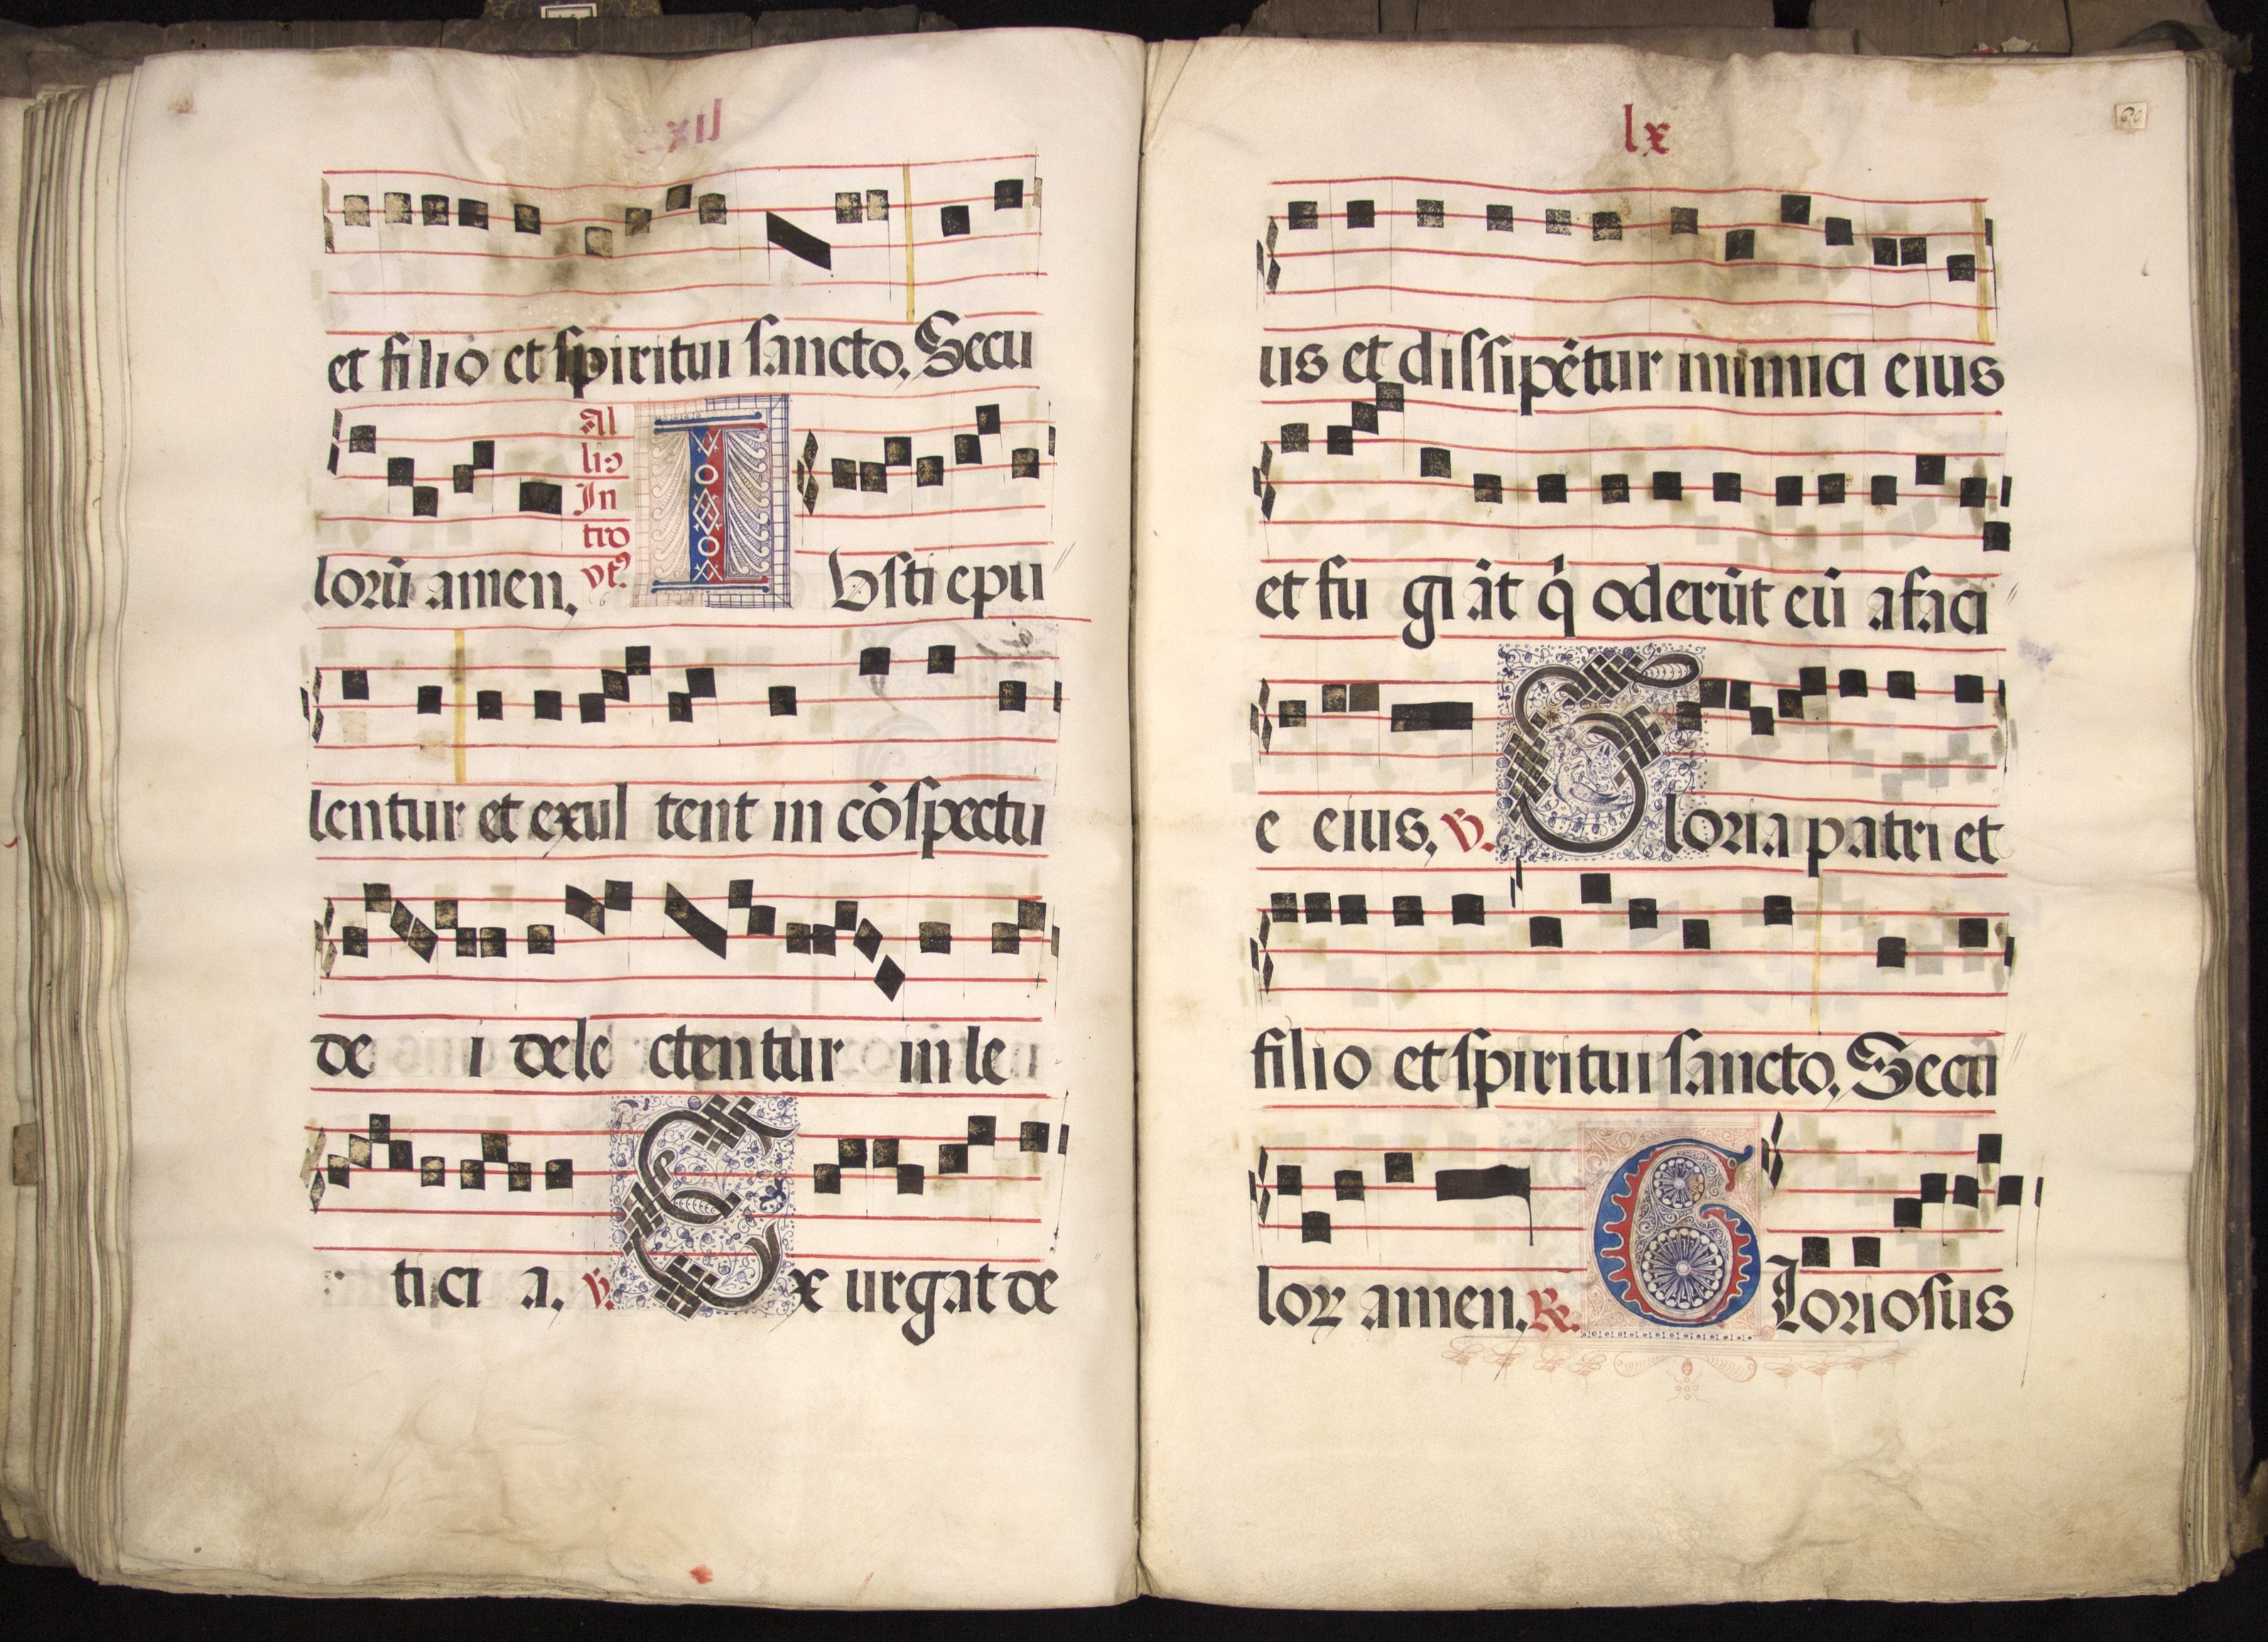 et filio et spiritui sancto. Secu
lorū amen.
Al
lio
In
tro
vt9
I Vsti epu
lentur et exul tent in cōspectu
de i dele ctentur in le
ti ci a. v. Ex urgat de
lx
60
us et dissipētur inimici eius
et fu gi āt q̄ oderūt eū a faci
e eius. v. Gloria patri et
filio et spiritui sancto. Secu
loꝝ amen. R. Gloriosus